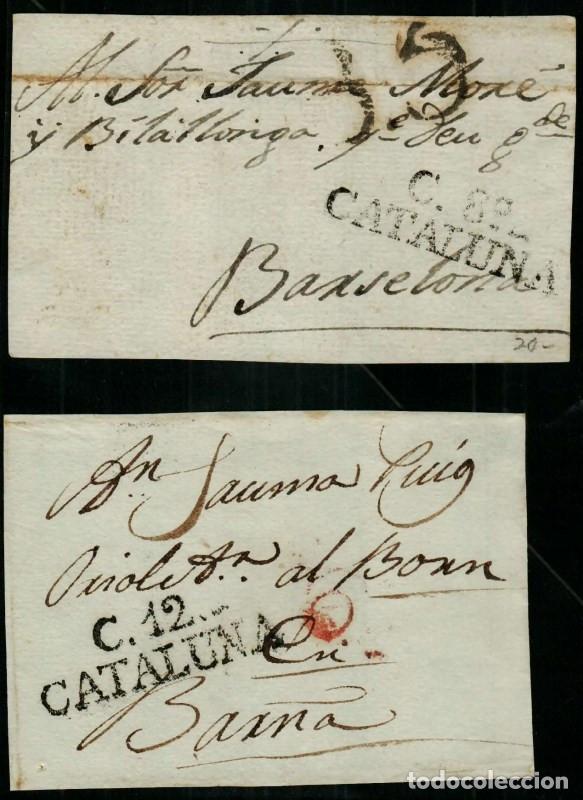 Al. Sor. Jaume Moré
y Bilallonga. q.e Deu g.de
C. 8.
CATALUÑA
Barselona
20-
An Jauma Puig
Oriol Ar. al Born
C. 12.
CATALUÑA
En
Barna
todocoleccion